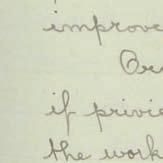 improve
if privi
the work